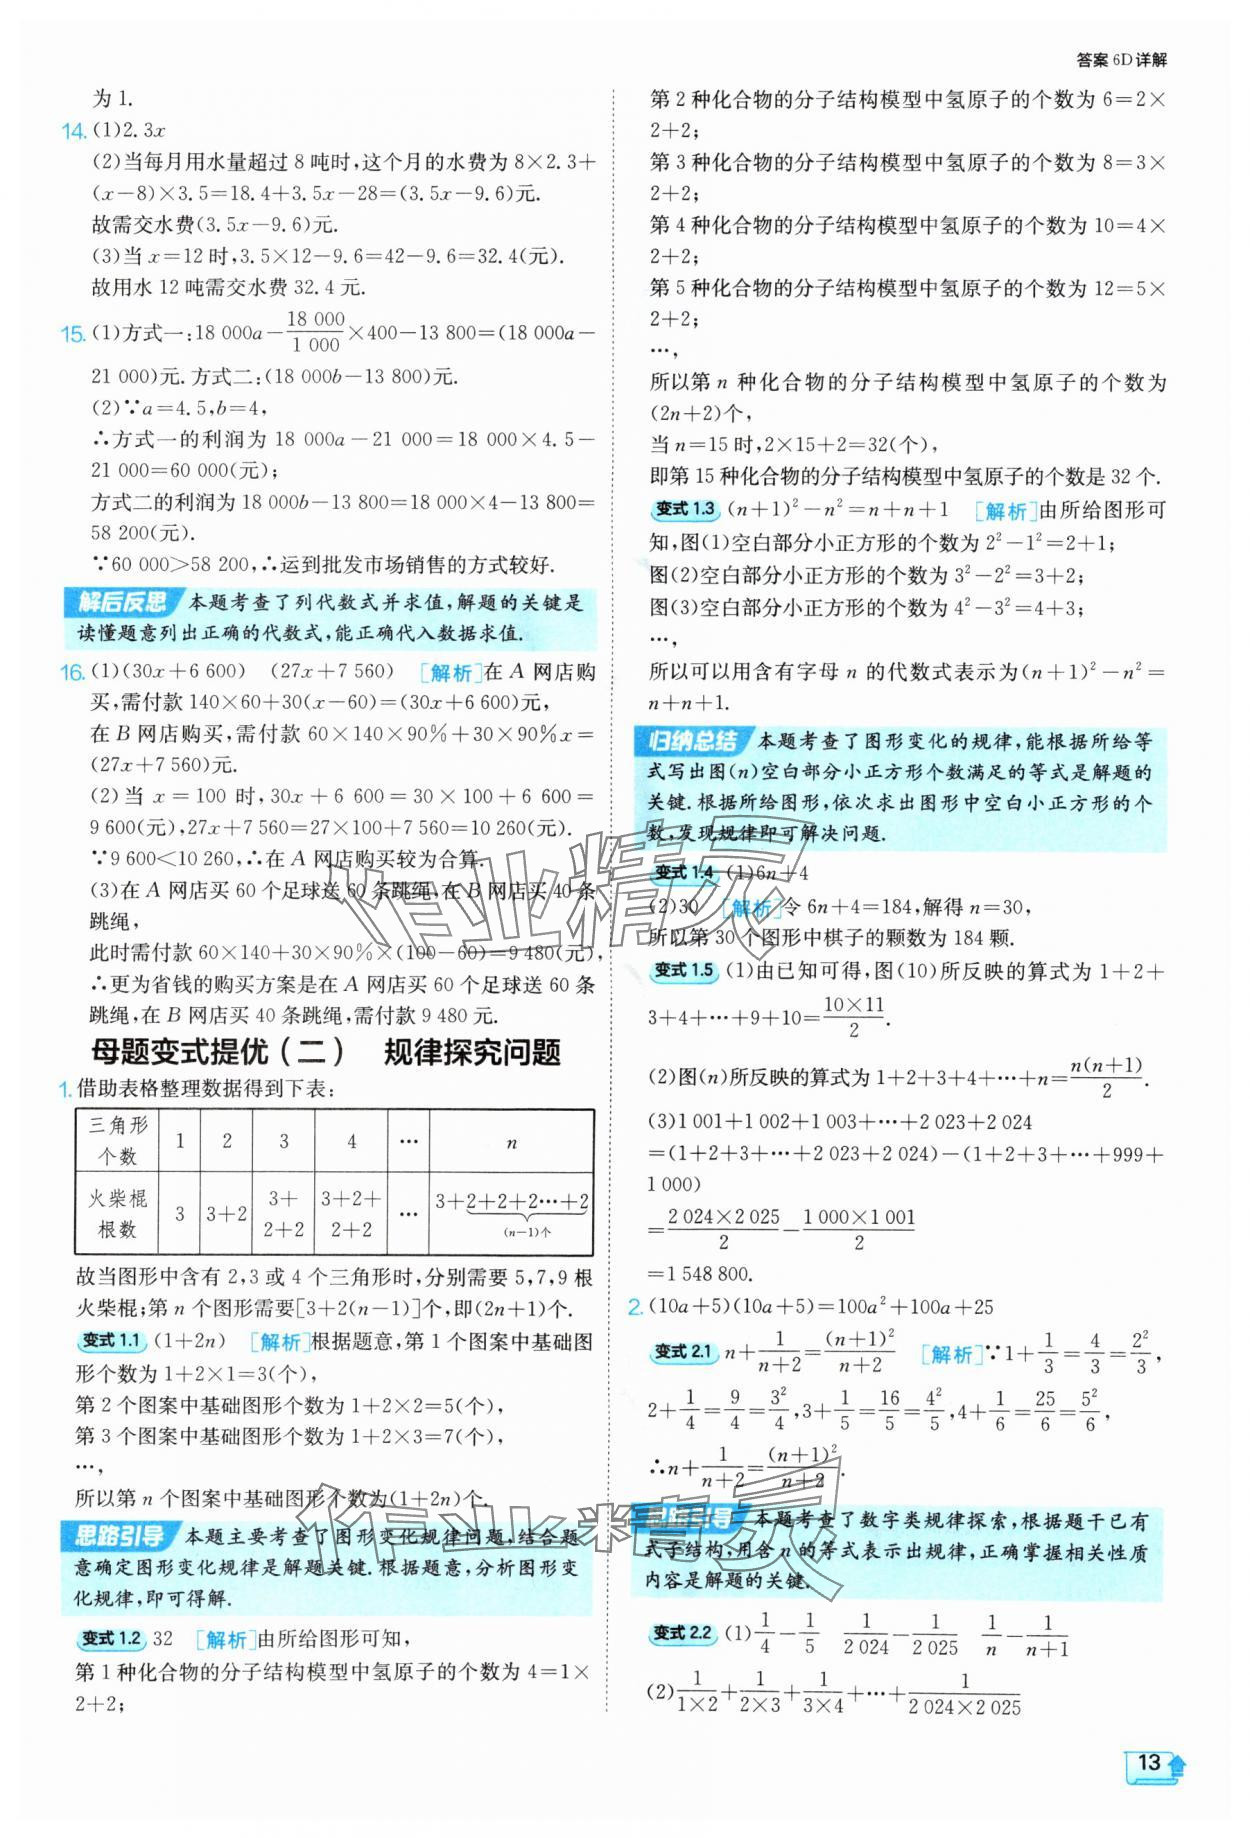 答案 6D 详解
为 1.
14. (1)2.3x
(2)当每月用水量超过 8 吨时,这个月的水费为 8×2.3+
(x-8)×3.5=18.4+3.5x-28=(3.5x-9.6)元.
故需交水费(3.5x-9.6)元.
(3)当 x=12 时,3.5×12-9.6=42-9.6=32.4(元).
故用水 12 吨需交水费 32.4 元.
15. (1)方式一:18 000a-18 000/1 000×400-13 800=(18 000a-
21 000)元. 方式二:(18 000b-13 800)元.
(2)∵a=4.5,b=4,
∴方式一的利润为 18 000a-21 000=18 000×4.5-
21 000=60 000(元);
方式二的利润为 18 000b-13 800=18 000×4-13 800=
58 200(元).
∵60 000>58 200,∴运到批发市场销售的方式较好.
解后反思 本题考查了列代数式并求值,解题的关键是
读懂题意列出正确的代数式,能正确代入数据求值.
16. (1)(30x+6 600) (27x+7 560) [解析]在 A 网店购
买,需付款 140×60+30(x-60)=(30x+6 600)元,
在 B 网店购买,需付款 60×140×90%+30×90%x=
(27x+7 560)元.
(2)当 x=100 时,30x+6 600=30×100+6 600=
9 600(元),27x+7 560=27×100+7 560=10 260(元).
∵9 600<10 260,∴在 A 网店购买较为合算.
(3)在 A 网店买 60 个足球送 60 条跳绳,在 B 网店买 40 条
跳绳,
此时需付款 60×140+30×90%×(100-60)=9 480(元),
∴更为省钱的购买方案是在 A 网店买 60 个足球送 60 条
跳绳,在 B 网店买 40 条跳绳,需付款 9 480 元.
母题变式提优(二) 规律探究问题
1. 借助表格整理数据得到下表:
三角形个数 1 2 3 4 … n
火柴棍根数 3 3+2 3+2+2 3+2+2+2 … 3+2+2+2…+2 (n-1)个
故当图形中含有 2,3 或 4 个三角形时,分别需要 5,7,9 根
火柴棍;第 n 个图形需要[3+2(n-1)]个,即(2n+1)个.
变式 1.1 (1+2n) [解析]根据题意,第 1 个图案中基础图
形个数为 1+2×1=3(个),
第 2 个图案中基础图形个数为 1+2×2=5(个),
第 3 个图案中基础图形个数为 1+2×3=7(个),
…,
所以第 n 个图案中基础图形个数为(1+2n)个.
思路引导 本题主要考查了图形变化规律问题,结合题
意确定图形变化规律是解题关键. 根据题意,分析图形变
化规律,即可得解.
变式 1.2 32 [解析]由所给图形可知,
第 1 种化合物的分子结构模型中氢原子的个数为 4=1×
2+2;
第 2 种化合物的分子结构模型中氢原子的个数为 6=2×
2+2;
第 3 种化合物的分子结构模型中氢原子的个数为 8=3×
2+2;
第 4 种化合物的分子结构模型中氢原子的个数为 10=4×
2+2;
第 5 种化合物的分子结构模型中氢原子的个数为 12=5×
2+2;
…,
所以第 n 种化合物的分子结构模型中氢原子的个数为
(2n+2)个,
当 n=15 时,2×15+2=32(个),
即第 15 种化合物的分子结构模型中氢原子的个数是 32 个.
变式 1.3 (n+1)²-n²=n+n+1 [解析]由所给图形可
知,图(1)空白部分小正方形的个数为 2²-1²=2+1;
图(2)空白部分小正方形的个数为 3²-2²=3+2;
图(3)空白部分小正方形的个数为 4²-3²=4+3;
…,
所以可以用含有字母 n 的代数式表示为(n+1)²-n²=
n+n+1.
归纳总结 本题考查了图形变化的规律,能根据所给等
式写出图(n)空白部分小正方形个数满足的等式是解题的
关键. 根据所给图形,依次求出图形中空白小正方形的个
数,发现规律即可解决问题.
变式 1.4 (1)6n+4
(2)30 [解析]令 6n+4=184,解得 n=30,
所以第 30 个图形中棋子的颗数为 184 颗.
变式 1.5 (1)由已知可得,图(10)所反映的算式为 1+2+
3+4+…+9+10=10×11/2.
(2)图(n)所反映的算式为 1+2+3+4+…+n=n(n+1)/2.
(3)1 001+1 002+1 003+…+2 023+2 024
=(1+2+3+…+2 023+2 024)-(1+2+3+…+999+
1 000)
=2 024×2 025/2-1 000×1 001/2
=1 548 800.
2. (10a+5)(10a+5)=100a²+100a+25
变式 2.1 n+1/(n+2)=(n+1)²/(n+2) [解析]∵1+1/3=4/3=2²/3,
2+1/4=9/4=3²/4,3+1/5=16/5=4²/5,4+1/6=25/6=5²/6,
∴n+1/(n+2)=(n+1)²/(n+2).
思路引导 本题考查了数字类规律探索,根据题干已有
式子结构,用含 n 的等式表示出规律,正确掌握相关性质
内容是解题的关键.
变式 2.2 (1)1/4-1/5 1/2 024-1/2 025 1/n-1/(n+1)
(2)1/(1×2)+1/(2×3)+1/(3×4)+…+1/(2 024×2 025)
13
作业精灵
作业精灵